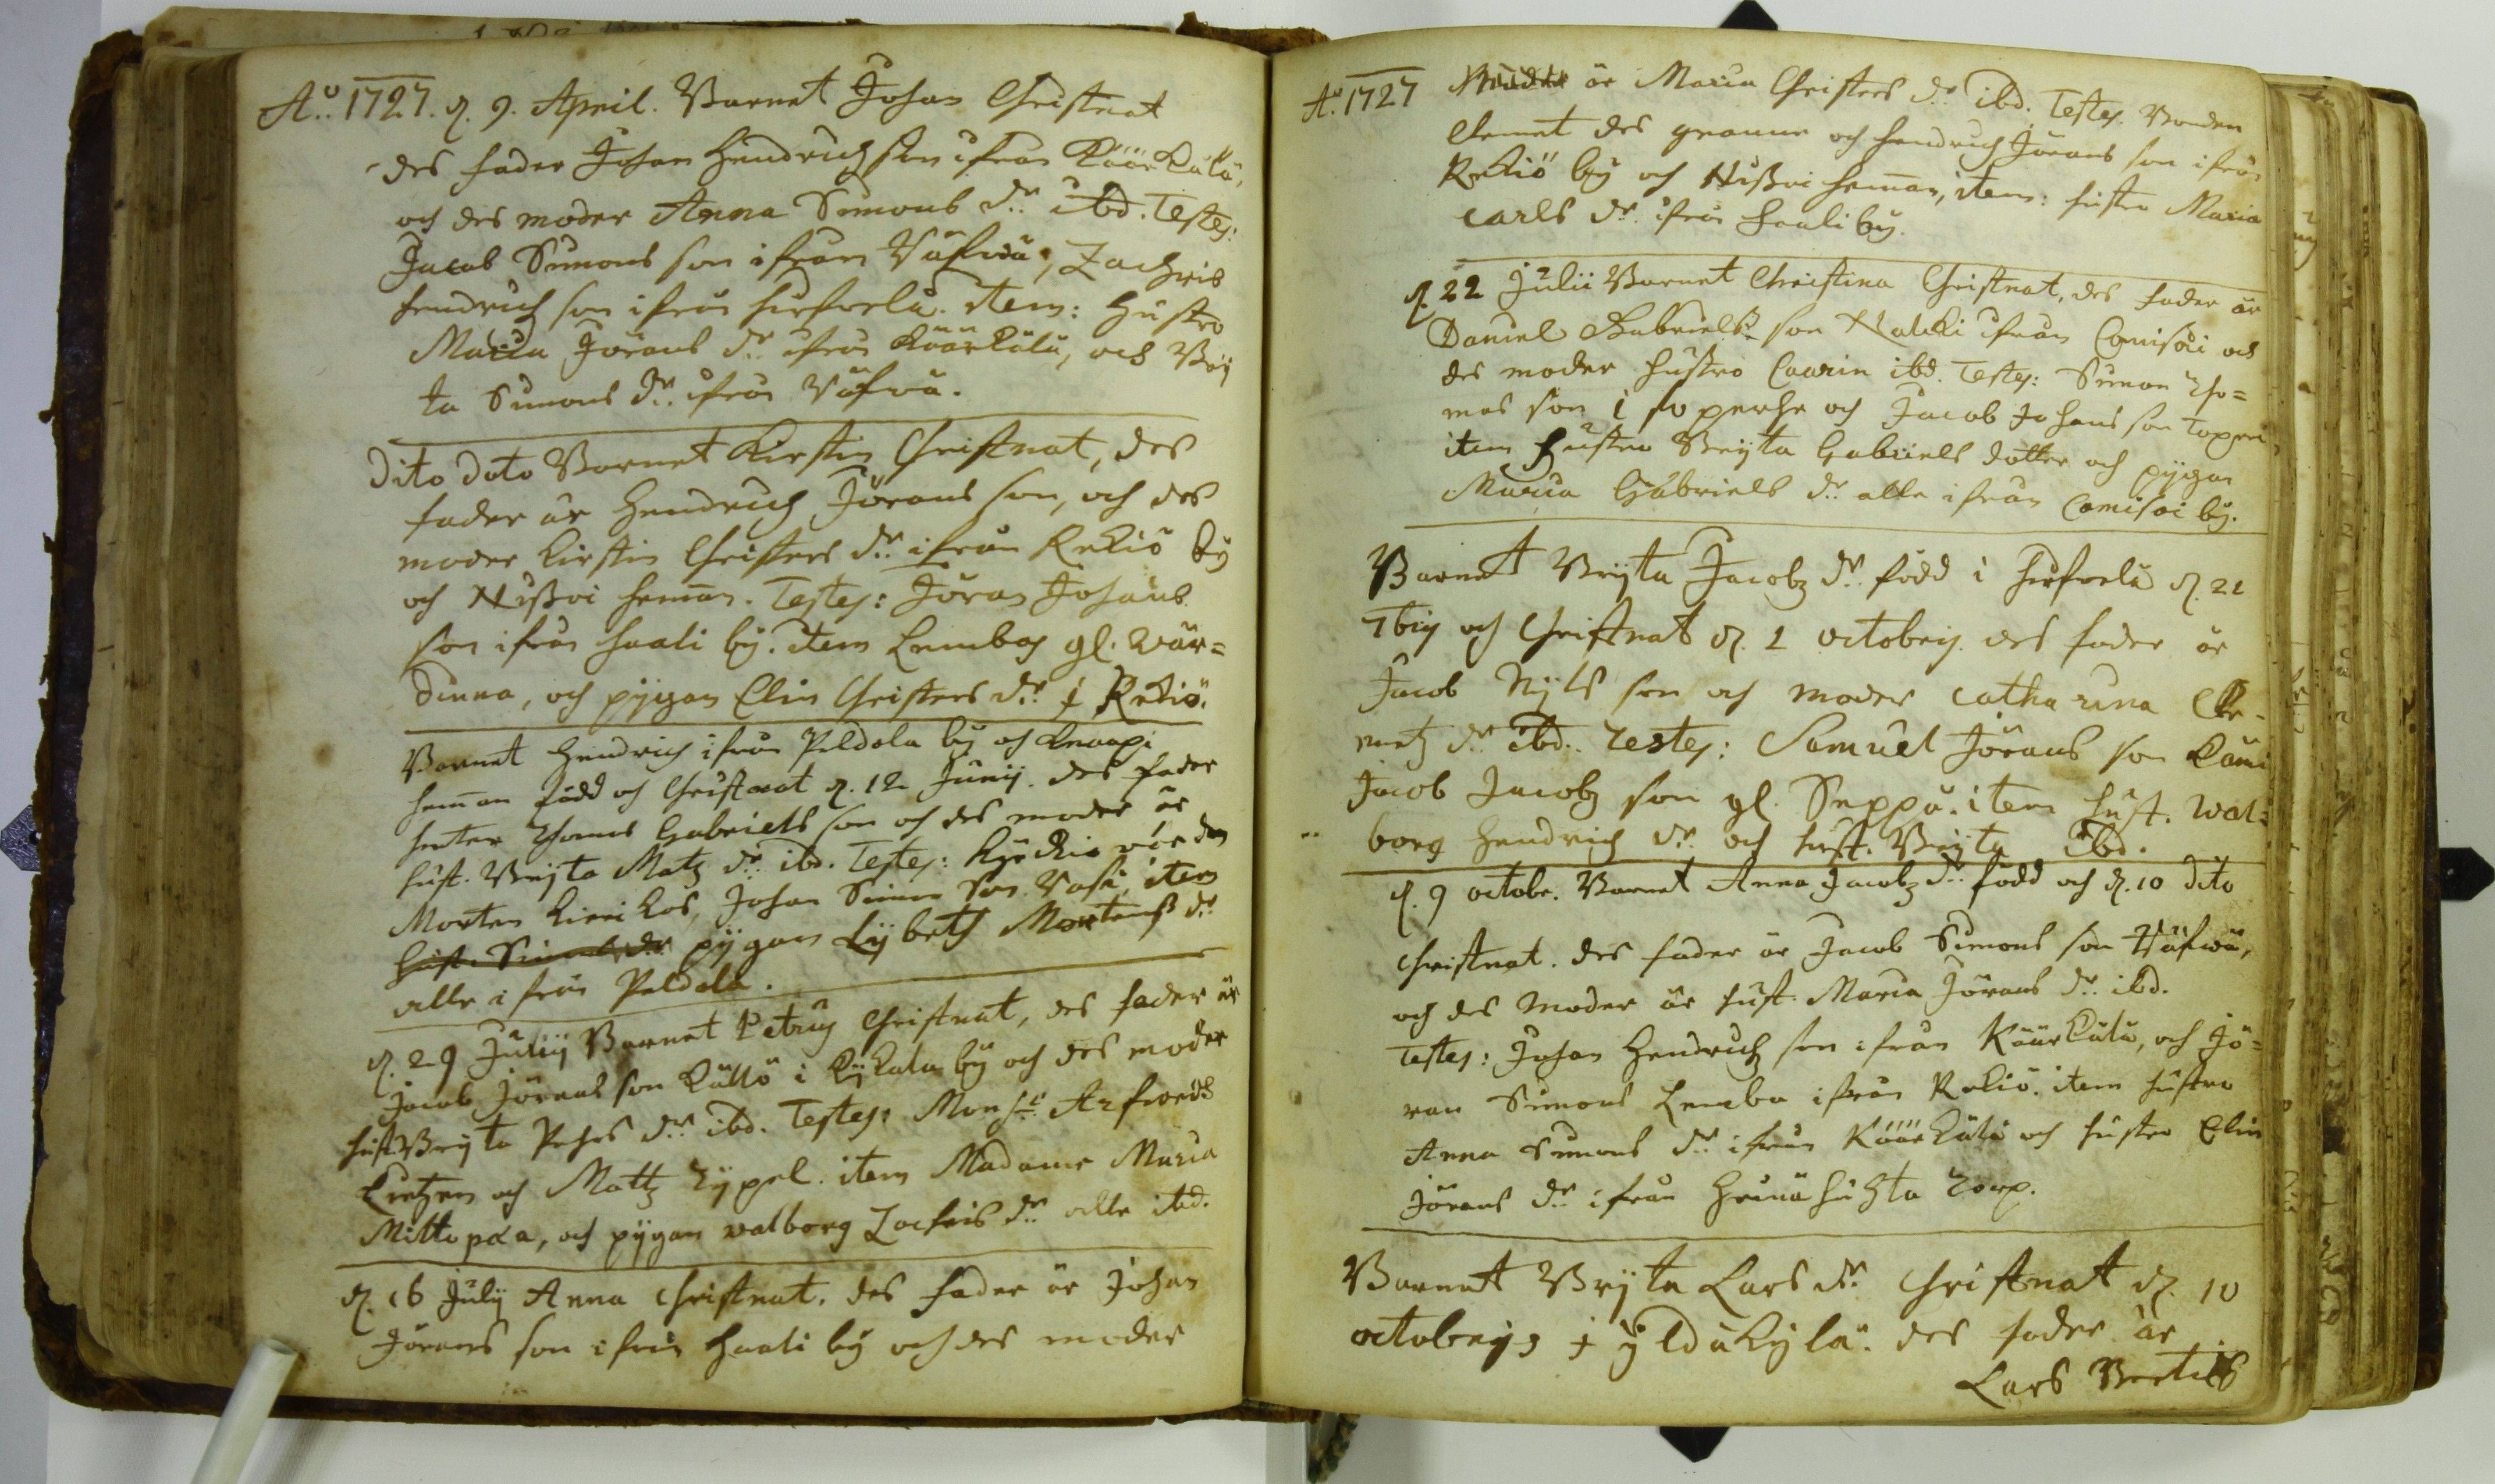 Ao. 1727. d. 9. April. Barnet Johan Christnat
des fader Johan Hendrichson ifrån Käärkälä,
och des moder Anna Simons dr. ibd. Testes:
Jacob Simons son ifrån Väfvä, Zachris
Hendrich son ifrån Hirfvelä. item: Hustro
Maria Jörans dr. ifrån Käärkälä, och Brÿ
ta Simons dr. ifrån Väfvä.
Dito Dato Barnet Kirstin Christnat, des
fader är Hendrich Jörans son, och des
moder Kirstin Christers dr. ifrån Rekiö bÿ
och Nissoi hemman. Testes: Jöran Johans
son ifrån Haali bÿ. item Lembas gl. wär=
dinna, och pÿgan Elin Christers dr. i Rekiö.
Barnet Hendrich ifrån Peldola bÿ och Knaapi
hemman född och Christnat d. 12 Junij. des fader
heter Thomas Gabriels son och des moder är
hust. Brÿta Matz dr. ibd. Testes: Kyrckio värden
Morten Kirri Kos, Johan Simon son Vasi, item
hust. Simons dr. pÿgan Lÿbeth Mortens dr.
alle ifrån Peldola.
d. 29 Junij Barnet Petrus Christnat, des fader är
Jacob Jörans son Källö i Kÿkala bÿ och des moder
hust. Brÿta Pehrs dr. ibd. Testes: Monsr. Arfwedh
och Mattz Tÿpel. item Madame Maria
Miltopæa, och pÿgan walborg Zachris dr. alle ibd.
d. 16 Julij Anna Christnat, des fader är Johan
Jörans son ifrån Haali bÿ och des moder
Ao. 1727 Moder är Maria Christers dr. ibd. Testes. Bonden
Clemet des granne och Hendrich Jörans son ifrån
Rekiö bÿ och Nissoi hemman, item: hustro Maria
Carls dr. ifrån Haali bÿ.
d. 22 Julii Barnet Christina Christnat, des fader är
Daniel Gabriels son Nalcki ifrån Comisoi och
des moder hustro Caarin ibd. Testes: Simon Tho=
mas son i och Jacob Johans son Toperi
item hustro Brÿta Gabriels dotter och pÿgan
Maria Gabriels dr. alle ifrån Comisoi bÿ.
Barnet Brÿta Jacobz dr. född i Hirfvelä d. 21
7bris och Christnat d. 1 octobris. des fader är
Jacob Nÿls son och moder Catharina Cle-
metz dr. ibd. Testes: Samuel Jörans son
Jacob Jacobz son gl. Seppä. item hust. wal=
borg Hendrich dr. och hust. Brÿta ibd.
d. 9 octobr. Barnet Anna Jacobz dr. född och d. 10 dito
Christnat. des fader är Jacob Simons son Väfwä,
och des Moder är hust. Maria Jörans dr. ibd.
Testes: Johan Hendrich son ifrån Käärkälä, och Jö=
ran Simons Lemba ifrån Rekiö. item hustro
Anna Simons dr. ifrån Käärkälä och hustro Elin
Jörans dr. ifrån Heinähuhta Torp.
Barnet Brÿta Lars dr. Christnat d. 10
octobris i Ÿldäkylä. des fader är
Lars Bertils